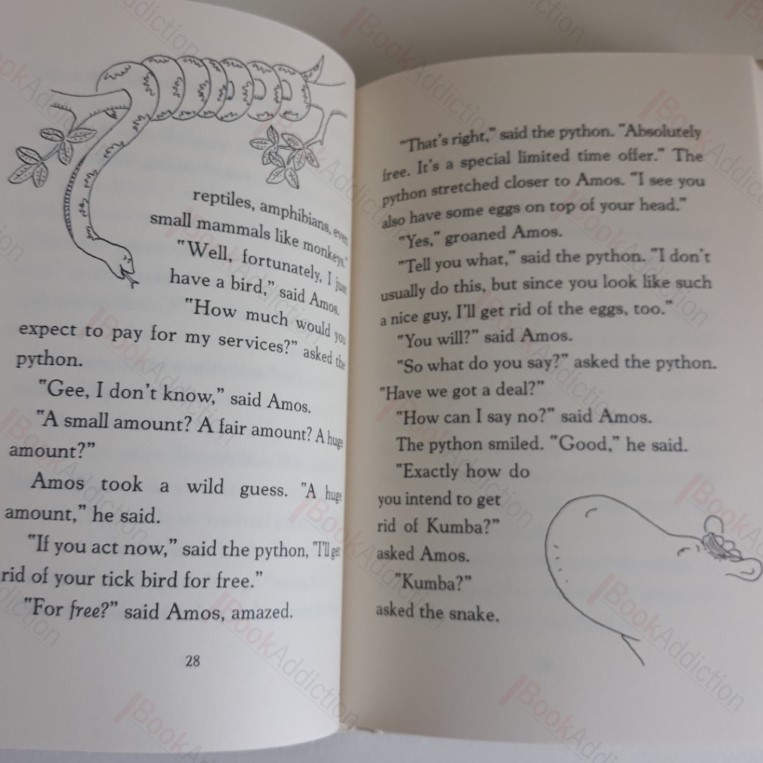 reptiles, amphibians, even
small mammals like monkeys."
"Well, fortunately, I just
have a bird," said Amos.
"How much would you
expect to pay for my services?" asked the
python.
"Gee, I don't know," said Amos.
"A small amount? A fair amount? A huge
amount?"
Amos took a wild guess. "A huge
amount," he said.
"If you act now," said the python, "I'll get
rid of your tick bird for free."
"For free?" said Amos, amazed.
28
"That's right," said the python. "Absolutely
free. It's a special limited time offer." The
python stretched closer to Amos. "I see you
also have some eggs on top of your head."
"Yes," groaned Amos.
"Tell you what," said the python. "I don't
usually do this, but since you look like such
a nice guy, I'll get rid of the eggs, too."
"You will?" said Amos.
"So what do you say?" asked the python.
"Have we got a deal?"
"How can I say no?" said Amos.
The python smiled. "Good," he said.
"Exactly how do
you intend to get
rid of Kumba?"
asked Amos.
"Kumba?"
asked the snake.
BookAddiction